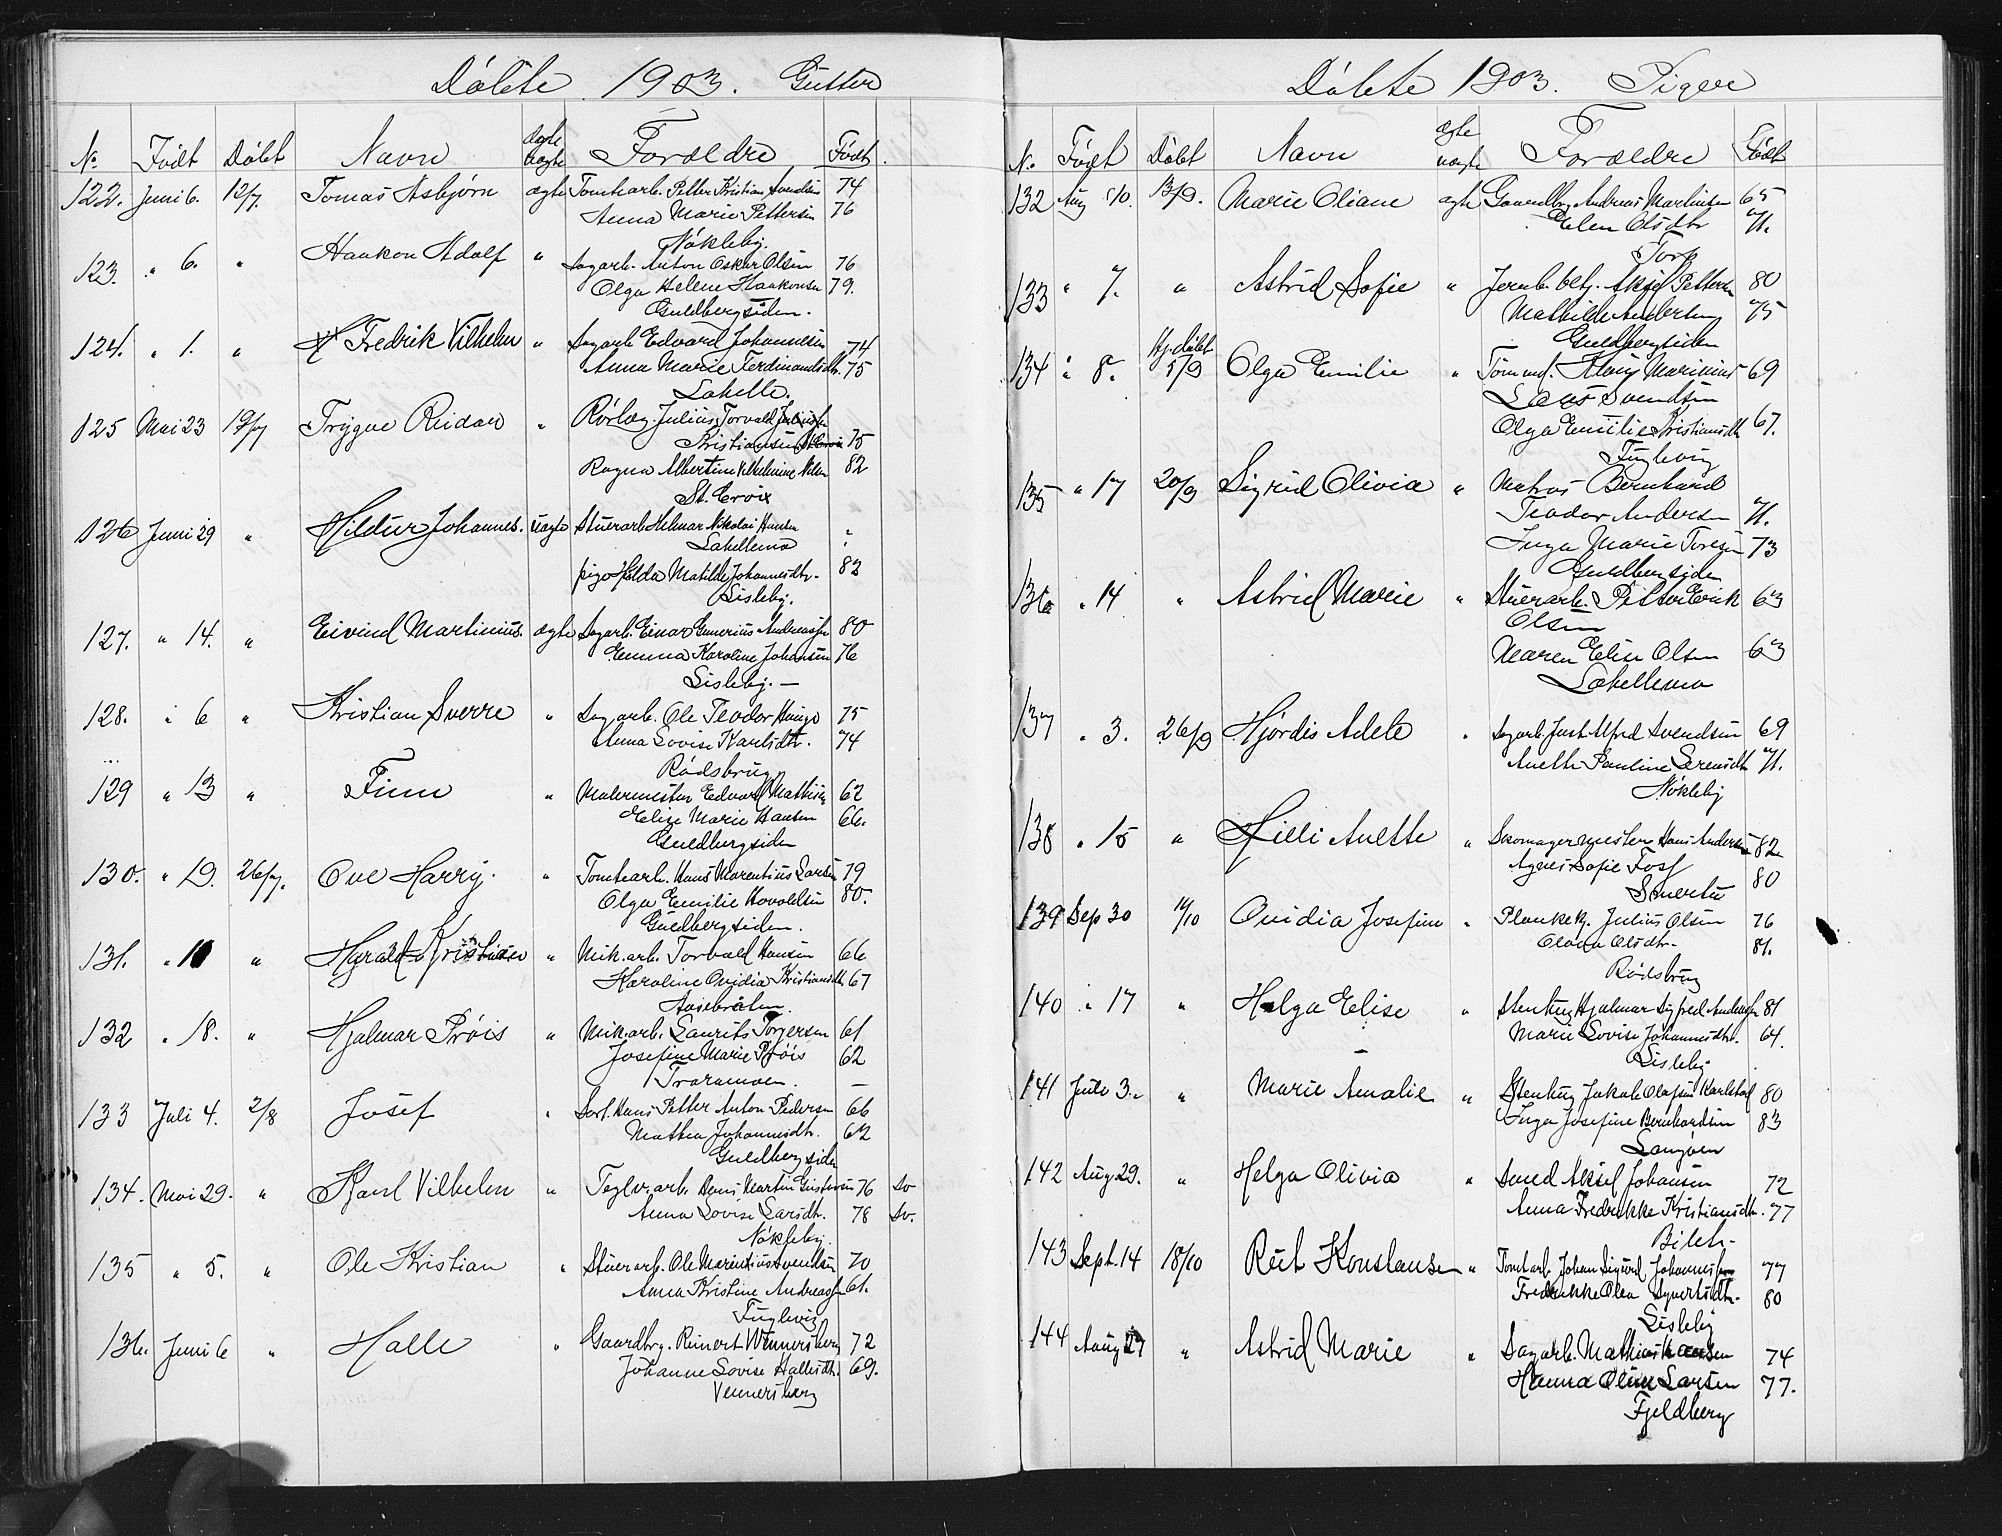 Døbte 1903. Gutter
No. Født Døbt Navn ægte uægte Forældre Født
122. Juni 6. 12/7. Tomas Asbjørn ægte Tomtearb. Petter Kristian Svendsen 74
Anna Marie Pettersen 76
Nøkleby.
123. " 6. " Haakon Adolf " Sagarb. Anton Oskar Olsen 76
Olga Helene Haakonsen 79.
Guldbergsiden.
124. " 1. " Fredrik Vilhelm " Sagarb. Edvard Johannesen 74
Anna Marie Ferdinandsdtr. 75
Labella.
125 Mai 23 19/7 Trygve Reidar " Rørlæg. Julius Torvald
Kristiansen 75
Ragna Albertine Vilhelmine 82
St. Croix
126 Juni 29 " Hildur Johannes. uægte Stuerarb. Helmar Nikolai Hansen "
Labellemo "
pige Hilda Matilde Johannesdtr. 82
Lisleby.
127. " 14. " Eivind Martinius. ægte Sagarb. Einar Gunerius Andreassen 80
Emma Karoline Johansen 76
Lisleby. —
128. " 6 " Kristian Sverre " Sagarb. Ole Teodor 75
Anna Lovise Karlsdtr. 74
Rødsbrug
129 " 13 " Finn " Malermester Edvard Mathisen 62
Elise Marie Hansen 66.
Guldbergsiden
130. " 19. 26/7. Ove Harry. " Tomtearb. Hans Marentius Larsen 79
Olga Emilie Hovoldsen 80.
Guldbergsiden.
131. " " Harald Kristian " Mek.arb. Torvald Hansen 66
Karoline Ovidia Kristiansdtr. 67
132 " 18. " Hjalmar Prøis " Mek.arb. Laurits Torgersen 61
Josefine Marie Prøis 62
Traramoen. —
133 Juli 4. 2/8 Josef " Hans Petter Anton Pedersen 66
Mathea Johannesdtr. 62
Guldbergsiden
134. Mai 29. " Karl Vilhelm " Teglv.arb. Hans Martin Gustavsen 76 Sv
Anna Lovise Larsdtr. 78 Sv.
Nøkleby.
135 " 5. " Ole Kristian " Stuerarb. Ole Marentius Svendsen 70
Anna Kristine Andreassen 61.
Fuglevig
136. Juni 6 " Halle " Gaardbrg. Reinert Wennersberg 72
Johanne Lovise Hallesdtr. 69.
Vennersberg
Døbte 1903. Piger
No. Født Døbt Navn ægte uægte Forældre Født
132 Aug 10. 13/9. Marie Oliane ægte Gaardbrg. Andreas Martinsen 65
Elen Olsdtr 71.
Torp
133 " 7. " Astrid Sofie " Jernb. betj. Aksel Pettersen 80
Mathilde Andersen 75
Guldbergsiden
134 " 8. Hj. døbt 5/9 Olga Emilie " Marinius 69
Laus Svendsen
Olga Emilie Kristiansdtr 67.
Fuglevig
135 " 17 20/9 Sigrid Olivia " Matros Bernhard
Teodor Andersen 71.
Inga Marie Toresen 73
Guldbergsiden
136 " 14 " Astrid Marie " Stuerarb. Petter Erik 63
Olsen
Maren Elise Olsen 63
Labellemo
137 " 3. 26/9 Hjørdis Adele " Sagarb. Just Alfred Svendsen 69
Anette Pauline Sørensdtr 71.
Nøkleby
138 " 15 " Lilli Anette " Skomagermester Hans Andersen 82
Agnes Sofie Foss 80
Smertu
139 Sep 30 11/10 Ovidia Josefine " Plankekj. Julius Olsen 76
Olava Olsdtr. 81.
Rødsbrug
140 " 17 " Helga Elise " Stenhug Hjalmar Sigfred Andreassen 81
Marie Lovise Johannesdtr. 64.
Lisleby
141 Juli 3. " Marie Amalie " Stenhug Jakob Olafsen Karlstad 80
Inga Josefine Bernhardsen 83
Langøen
142 Aug 29. " Helga Olivia " Smed Aksel Johansen 72
Anna Fredrikke Kristiansdtr. 77
143 Sept. 14 18/10 Rut Konstanse " Tomtarb. Johan Sigurd Johannessen 77
Fredrikke Olea Syvertsdtr. 80
Lisleby
144 Aug 27 " Astrid Marie " Sagarb. Mathias Hansen 74
Hanna Oline Larsen 77.
Fjeldberg